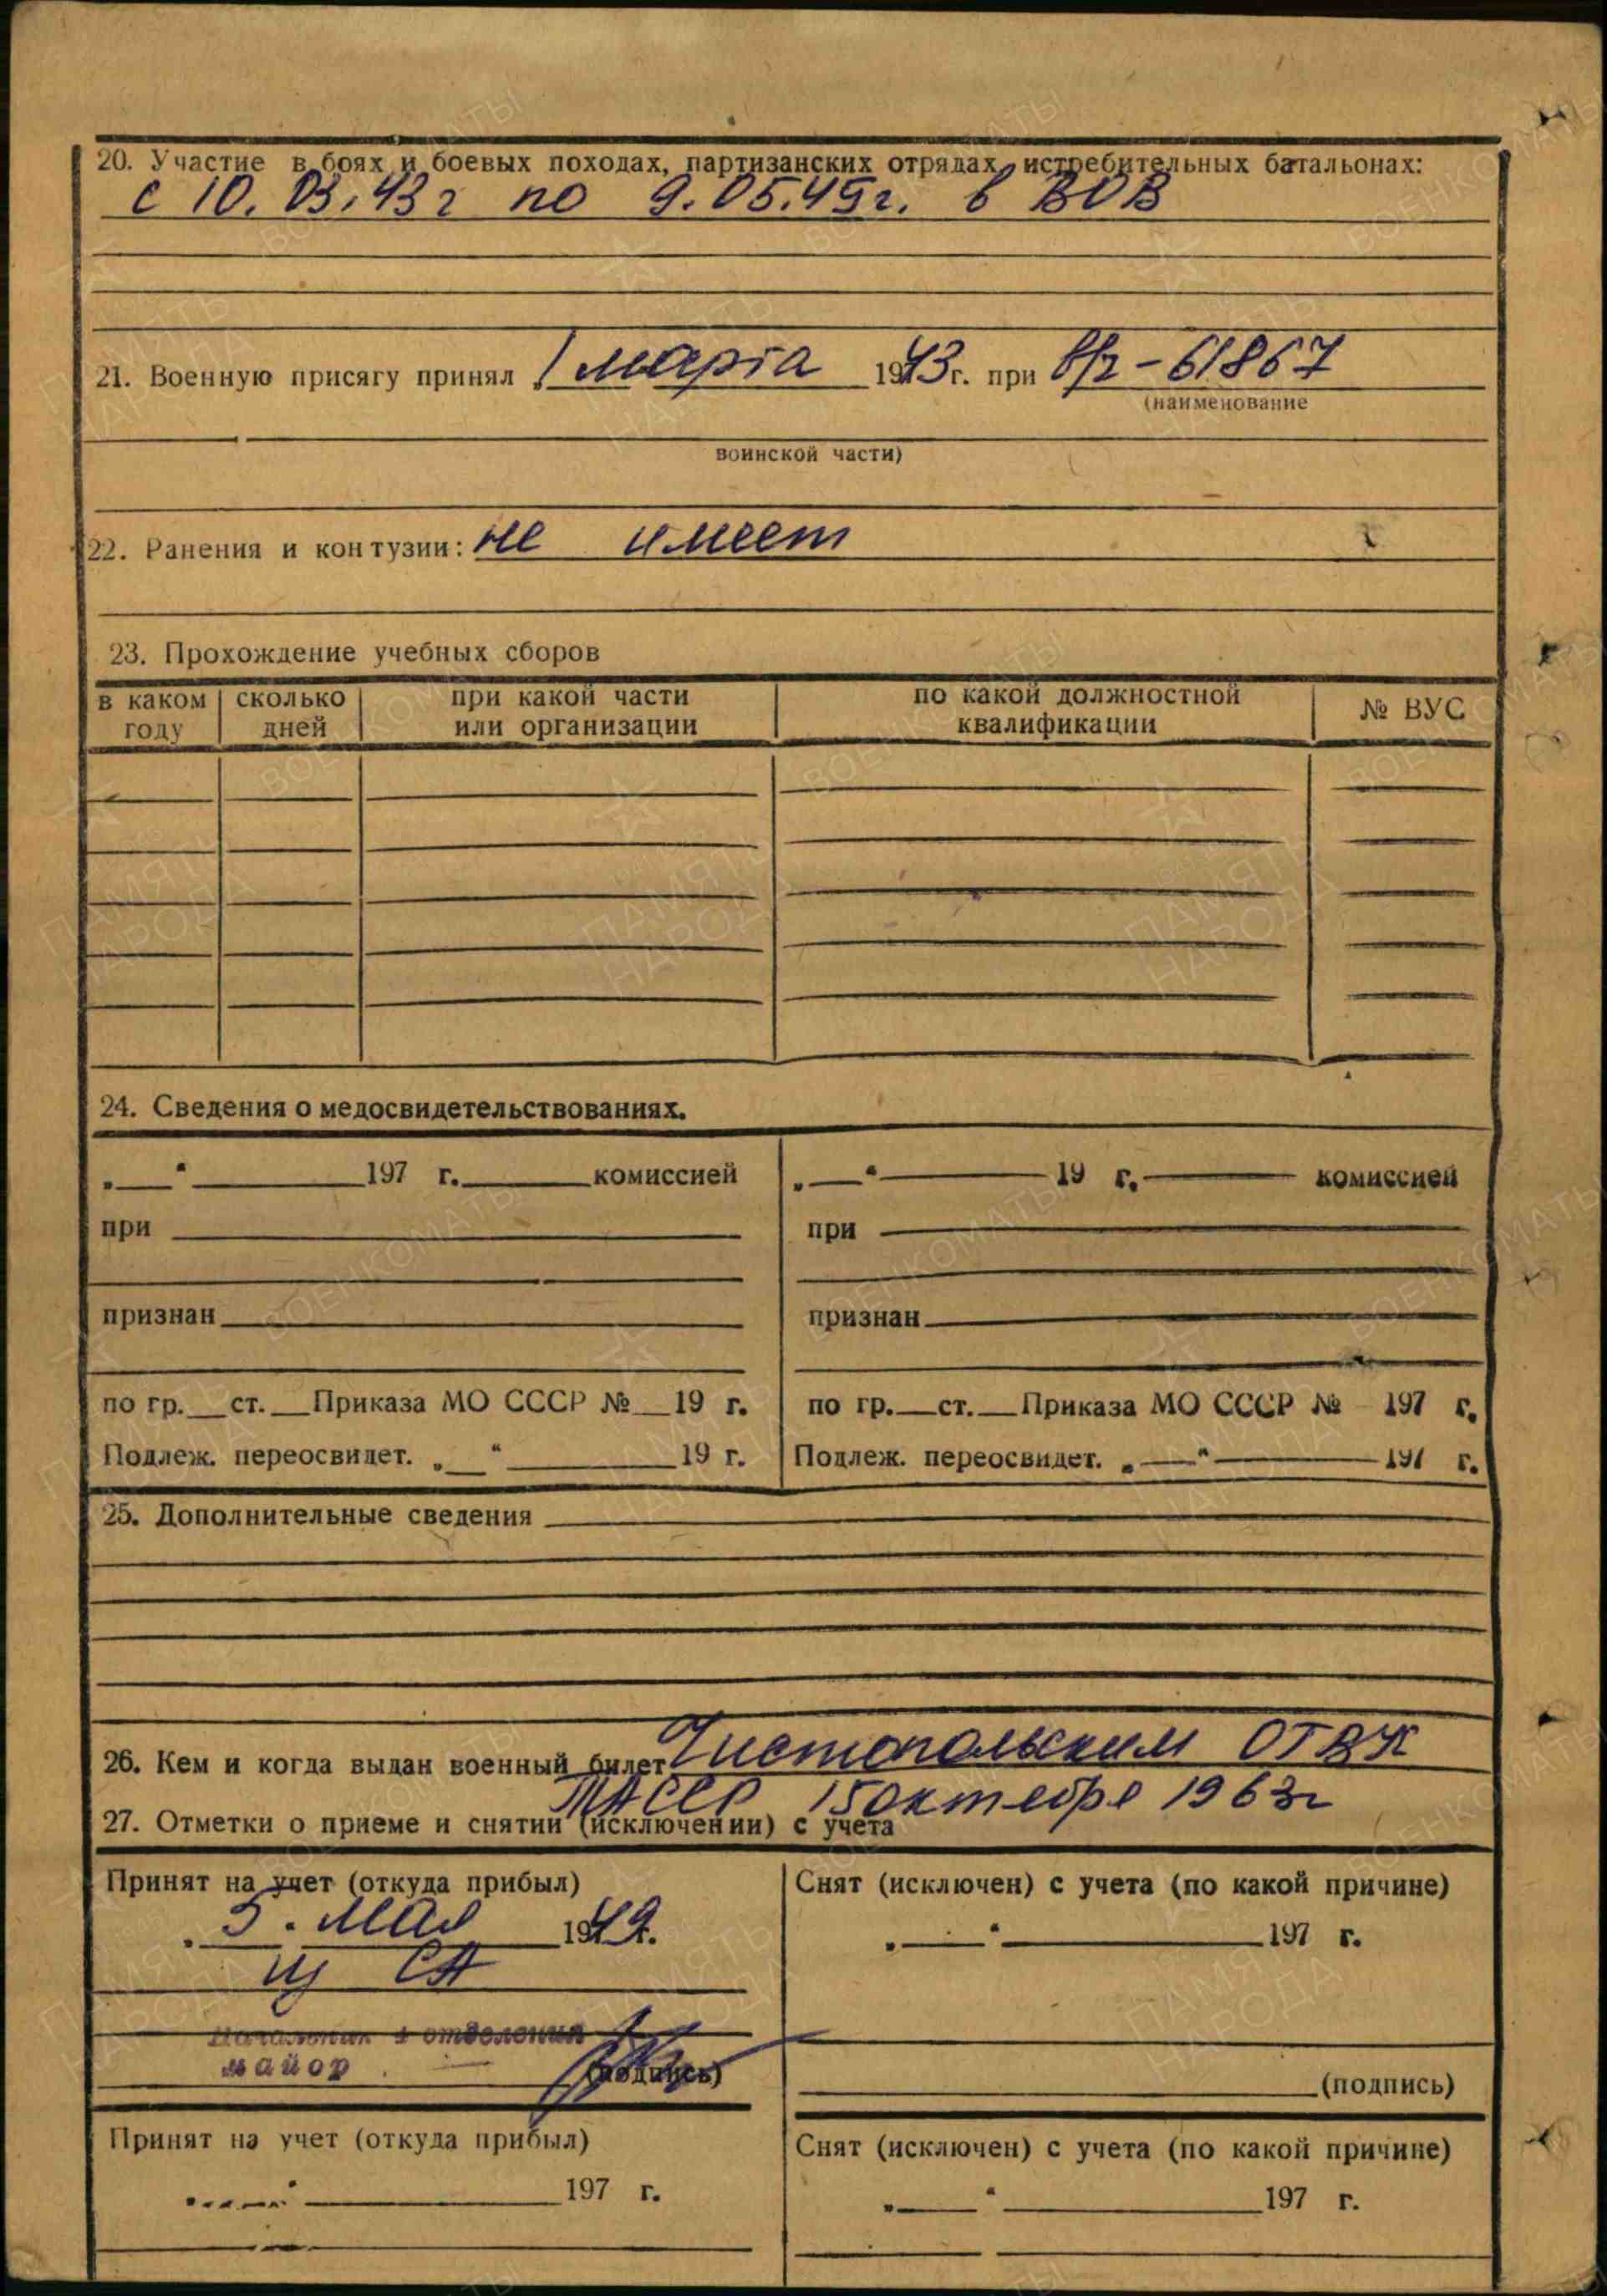 20. Участие в боях и боевых походах, партизанских отрядах, истребительных батальонах:
с 10. 03. 43 г по 9. 05. 45 г. в ВОВ
21. Военную присягу принял 1 марта 1943 г. при в/ч - 61867
(наименование
воинской части)
22. Ранения и контузии: не имеет
23. Прохождение учебных сборов
в каком году сколько дней при какой части или организации по какой должностной квалификации № ВУС
24. Сведения о медосвидетельствованиях.
„ “ 197 г. комиссией „ “ 19 г. комиссией
при при
признан признан
по гр. ст. Приказа МО СССР № 19 г. по гр. ст. Приказа МО СССР № 197 г.
Подлеж. переосвидет. „ “ 19 г. Подлеж. переосвидет. „ “ 197 г.
25. Дополнительные сведения
26. Кем и когда выдан военный билет Чистопольским ОГВК
ТАССР 15 октября 1963 г
27. Отметки о приеме и снятии (исключении) с учета
Принят на учет (откуда прибыл) Снят (исключен) с учета (по какой причине)
5. мая 1949. „ “ 197 г.
из СА
Начальник 1 отделения
майор (подпись) (подпись)
Принят на учет (откуда прибыл) Снят (исключен) с учета (по какой причине)
197 г. „ “ 197 г.
ПАМЯТЬ НАРОДА
ВОЕНКОМАТЫ